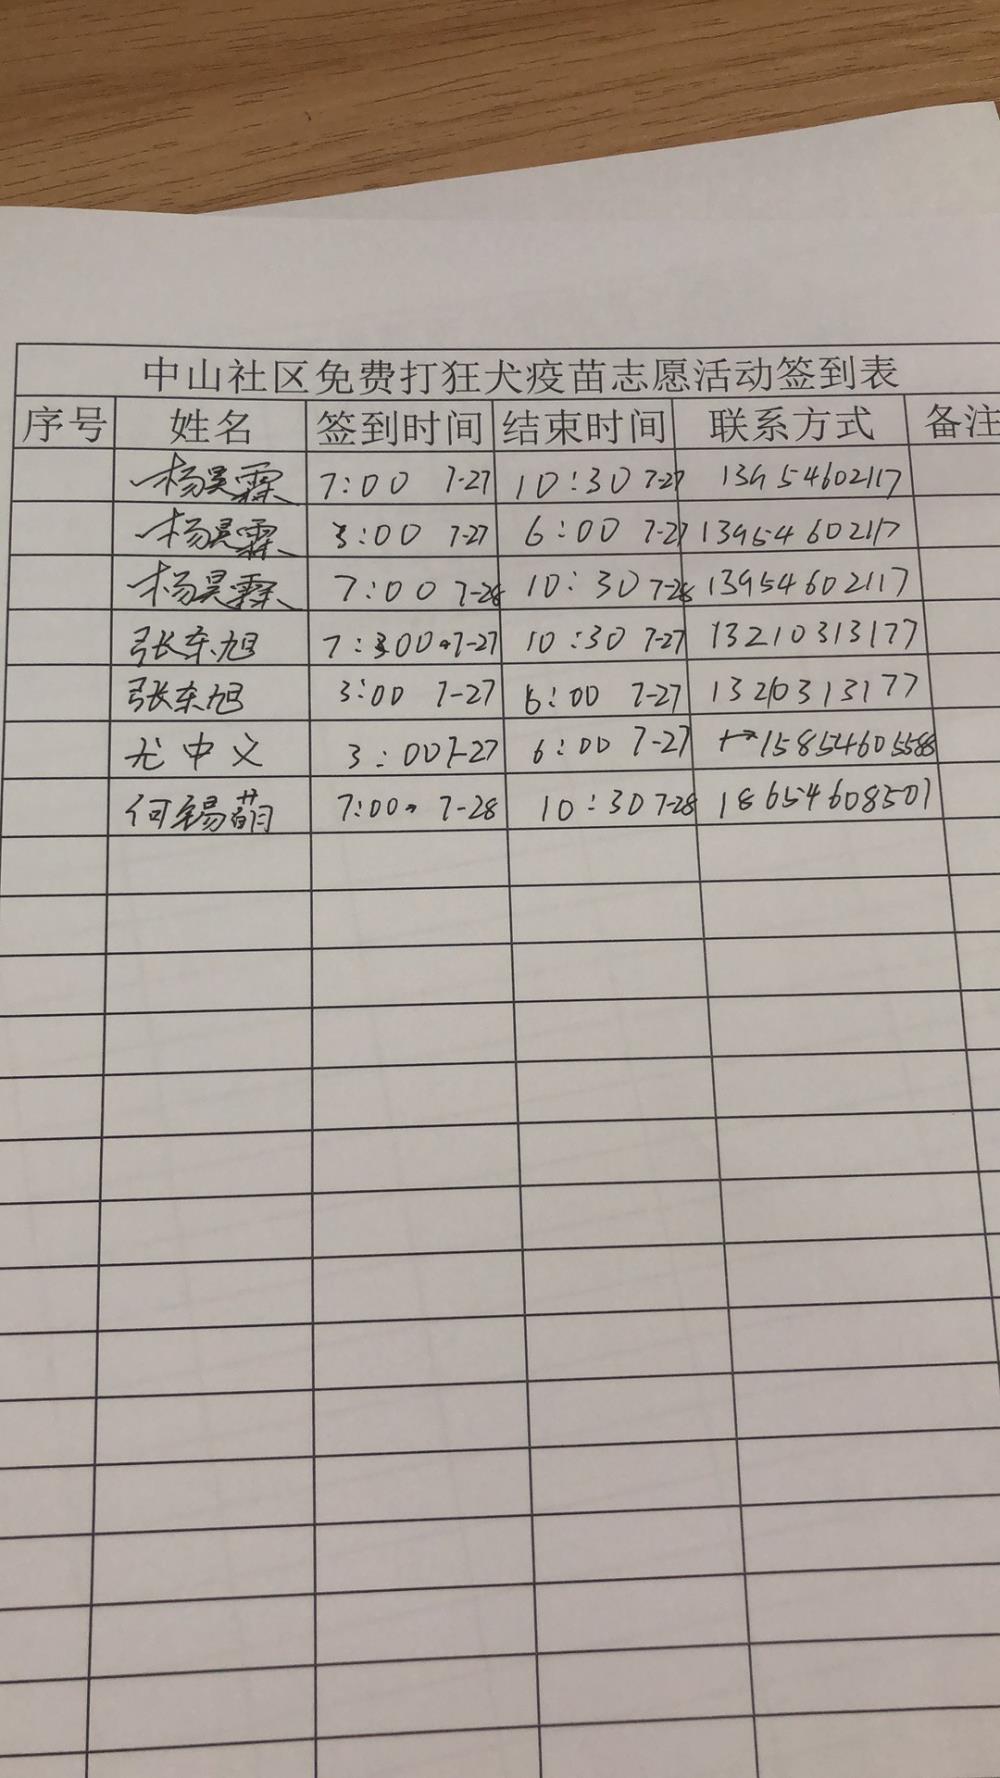 中山社区免费打狂犬疫苗志愿活动签到表
序号 姓名 签到时间 结束时间 联系方式 备注
杨昊霖 7:00 7-27 10:30 7-27 13954602117
杨昊霖 3:00 7-27 6:00 7-27 13954602117
杨昊霖 7:00 7-28 10:30 7-28 13954602117
张东旭 7:300 7-27 10:30 7-27 13210313177
张东旭 3:00 7-27 6:00 7-27 13210313177
尤中义 3:00 7-27 6:00 7-27 15854605586
何锡萌 7:00 7-28 10:30 7-28 18654608501